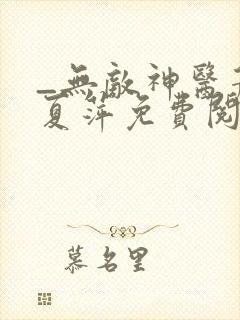 _無敵神醫
夏萍免費閱
慕名里